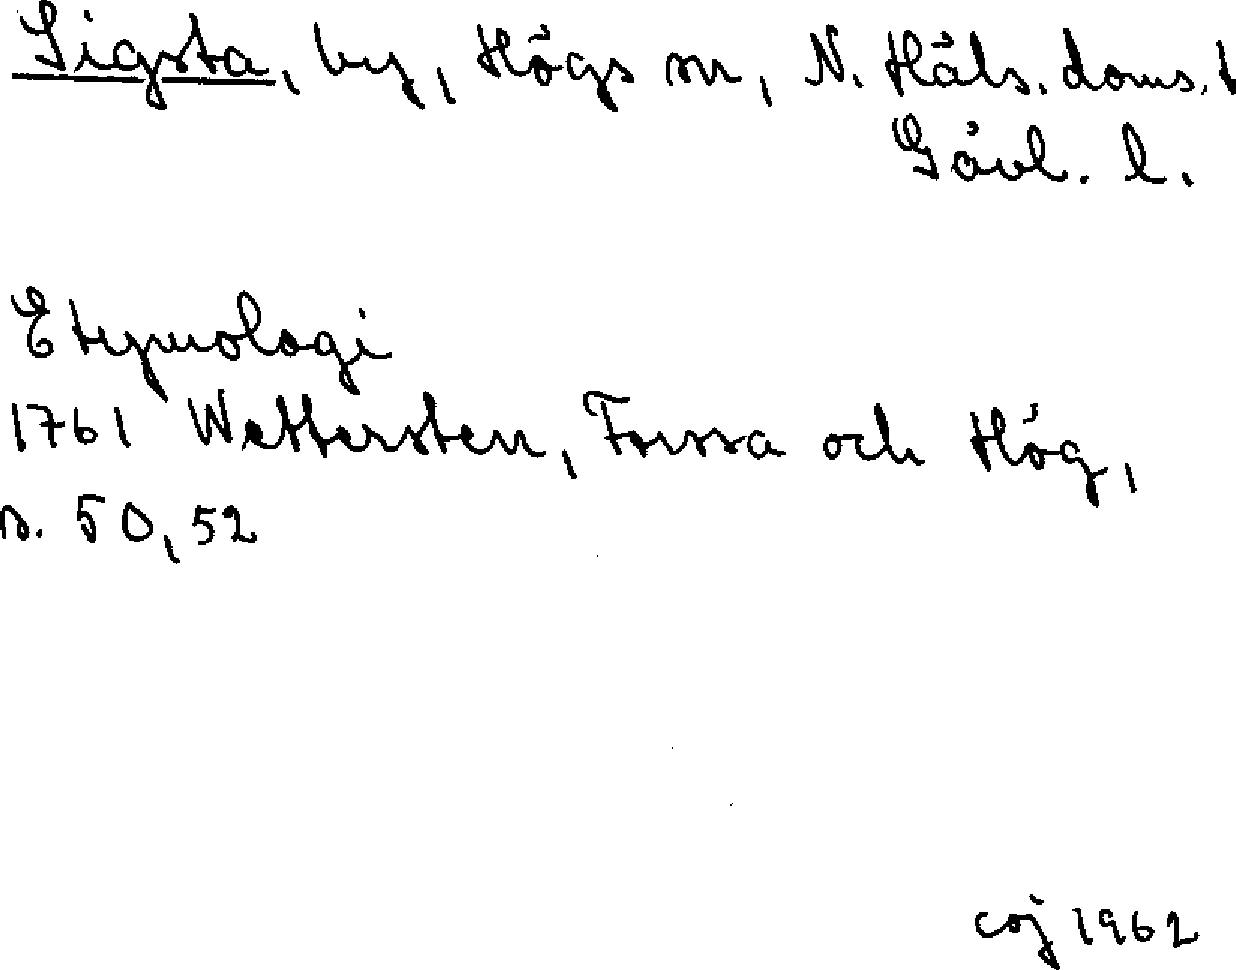 Sigsta, by, Högs sn, N. Häls. doms. t
Gävl. l.
Etymologi
1761 Wettersten, Forssa och Hög,
s. 50, 52
coj 1962